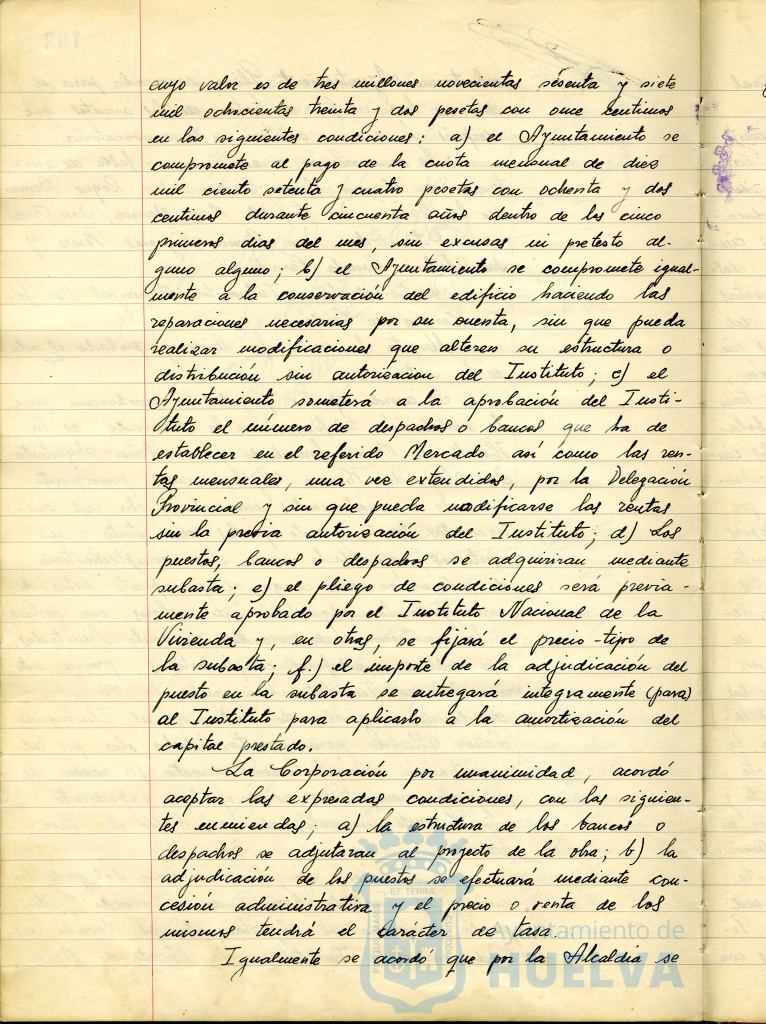 cuyo valor es de tres millones novecientas sesenta y siete
mil ochocientas treinta y dos pesetas con once centimos
en las siguientes condiciones: a) el Ayuntamiento se
compromete al pago de la cuota mensual de diez
mil ciento setenta y cuatro pesetas con ochenta y dos
centimos durante cincuenta años dentro de los cinco
primeros dias del mes, sin excusas ni pretesto al-
guno alguno; b) el Ayuntamiento se compromete igual-
mente a la conservación del edificio haciendo las
reparaciones necesarias por su cuenta, sin que pueda
realizar modificaciones que alteren su estructura o
distribución sin autorizacion del Instituto; c) el
Ayuntamiento someterá a la aprobación del Insti-
tuto el número de despachos o bancos que ha de
establecer en el referido Mercado asi como las ren-
tas mensuales, una vez extendidos, por la Delegación
Provincial y sin que pueda modificarse las rentas
sin la previa autorización del Instituto; d) Los
puestos, bancos o despachos se adquiriran mediante
subasta; e) el pliego de condiciones será previa-
mente aprobado por el Instituto Nacional de la
Vivienda y, en otras, se fijará el precio-tipo de
la subasta; f.) el importe de la adjudicación del
puesto en la subasta se entregará integramente (para)
al Instituto para aplicarlo a la amortización del
capital prestado.
La Corporación por unanimidad, acordó
aceptar las expresadas condiciones, con las siguien-
tes enmiendas; a) la estructura de los bancos o
despachos se adjutaran al proyecto de la obra; b) la
adjudicación de los puestos se efectuará mediante con-
cesión administrativa y el precio o renta de los
mismos tendrá el carácter de tasa.
Igualmente se acordó que por la Alcaldia se
Ayuntamiento de
HUELVA